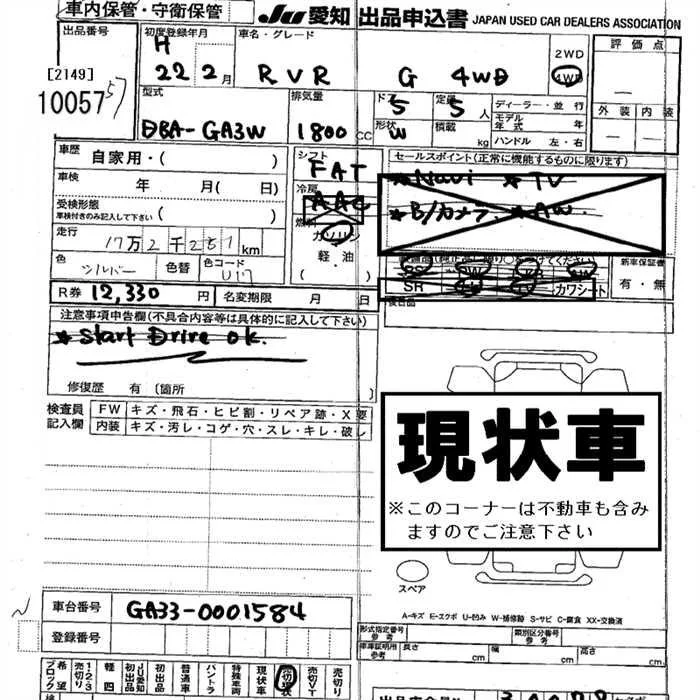 車内保管・守衛保管
JU 愛知 出品申込書 JAPAN USED CAR DEALERS ASSOCIATION
出品番号
[2149]
10057
57
初度登録年月
H
22 2月
車名・グレード
RVR G 4WD
2WD
4WD
評価点
—
外装 内装
— —
型式
DBA-GA3W
排気量
1800 CC
ドア
5
定員
5 人
形状
W
積載
kg
ディーラー・並行
モデル年式 年
ハンドル 左・右
車歴
自家用・( )
車検
年 月( 日)
受検形態
車検付きのみ記入して下さい ( )
走行
17万2千251km
色
シルバー
色替
色コード
U17
シフト
FAT
冷房
AAC
燃料
ガソリン
軽・油
( )
セールスポイント(正常に機能するものに限ります)
★Navi ★TV
★B/カメラ ★AW
SR TV カワシート
新車保証書
有・無
R券 12,330 円
名変期限 月 日
注意事項申告欄(不具合内容等は具体的に記入して下さい)
★Start Drive ok.
修復歴 有 〔箇所 〕
検査員
記入欄
FW キズ・飛石・ヒビ割・リペア跡・X要
内装 キズ・汚レ・コゲ・穴・スレ・キレ・破レ
現状車
※このコーナーは不動車も含み
ますのでご注意下さい
スペア
A-キズ E-エクボ U-凹み W-補修跡 S-サビ C-腐食 XX-交換済
車台番号 GA33-0001584
登録番号
形式指定番号
参考
類別区分番号
参考
車庫証明用
参考
長さ cm
幅 cm
高さ cm
希望ブロック
1・2・3 売切り
軽四
JU愛知初出品
初出品
普通車
バントラ
特殊車両
現状車
売切現状
売切VT
売切り